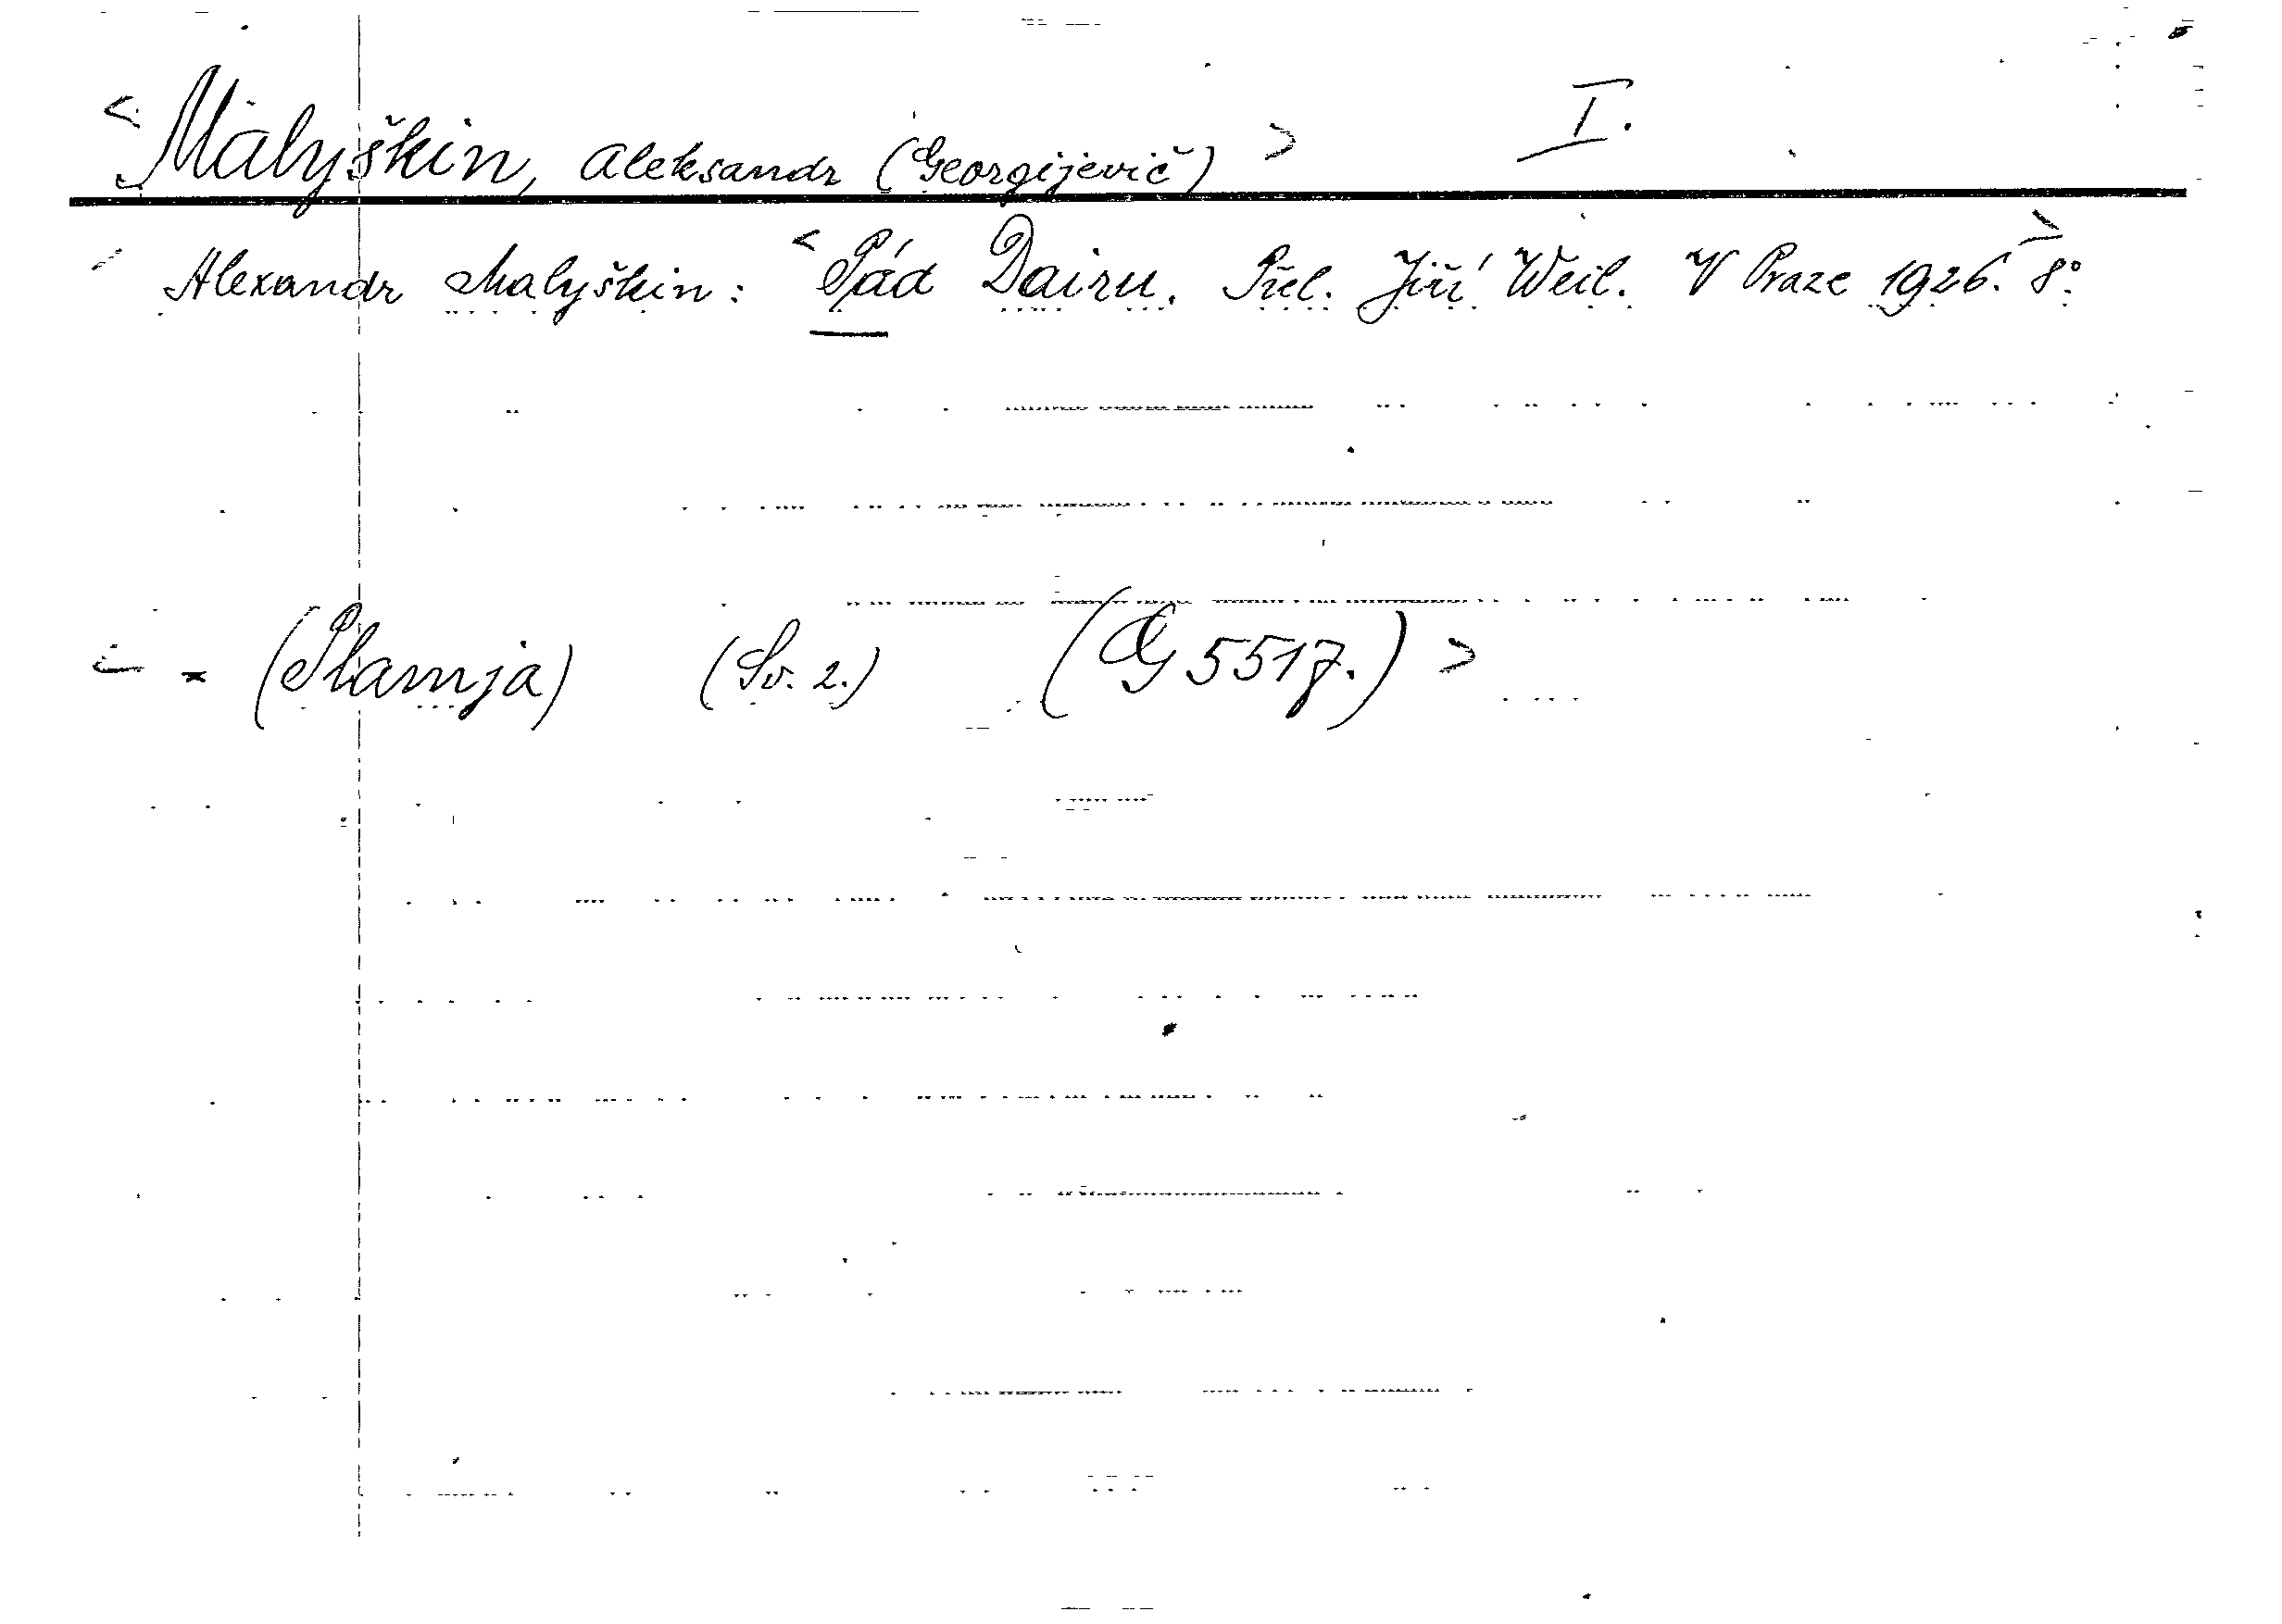 <Malyškin, Aleksandr (Georgijevič)> I.
Alexandr Malyškin: <Pád Dairu. Přel. Jiří Weil. V Praze 1926.> 8°.
<- (Plamja) (Sv. 2.) (G 5517.)>